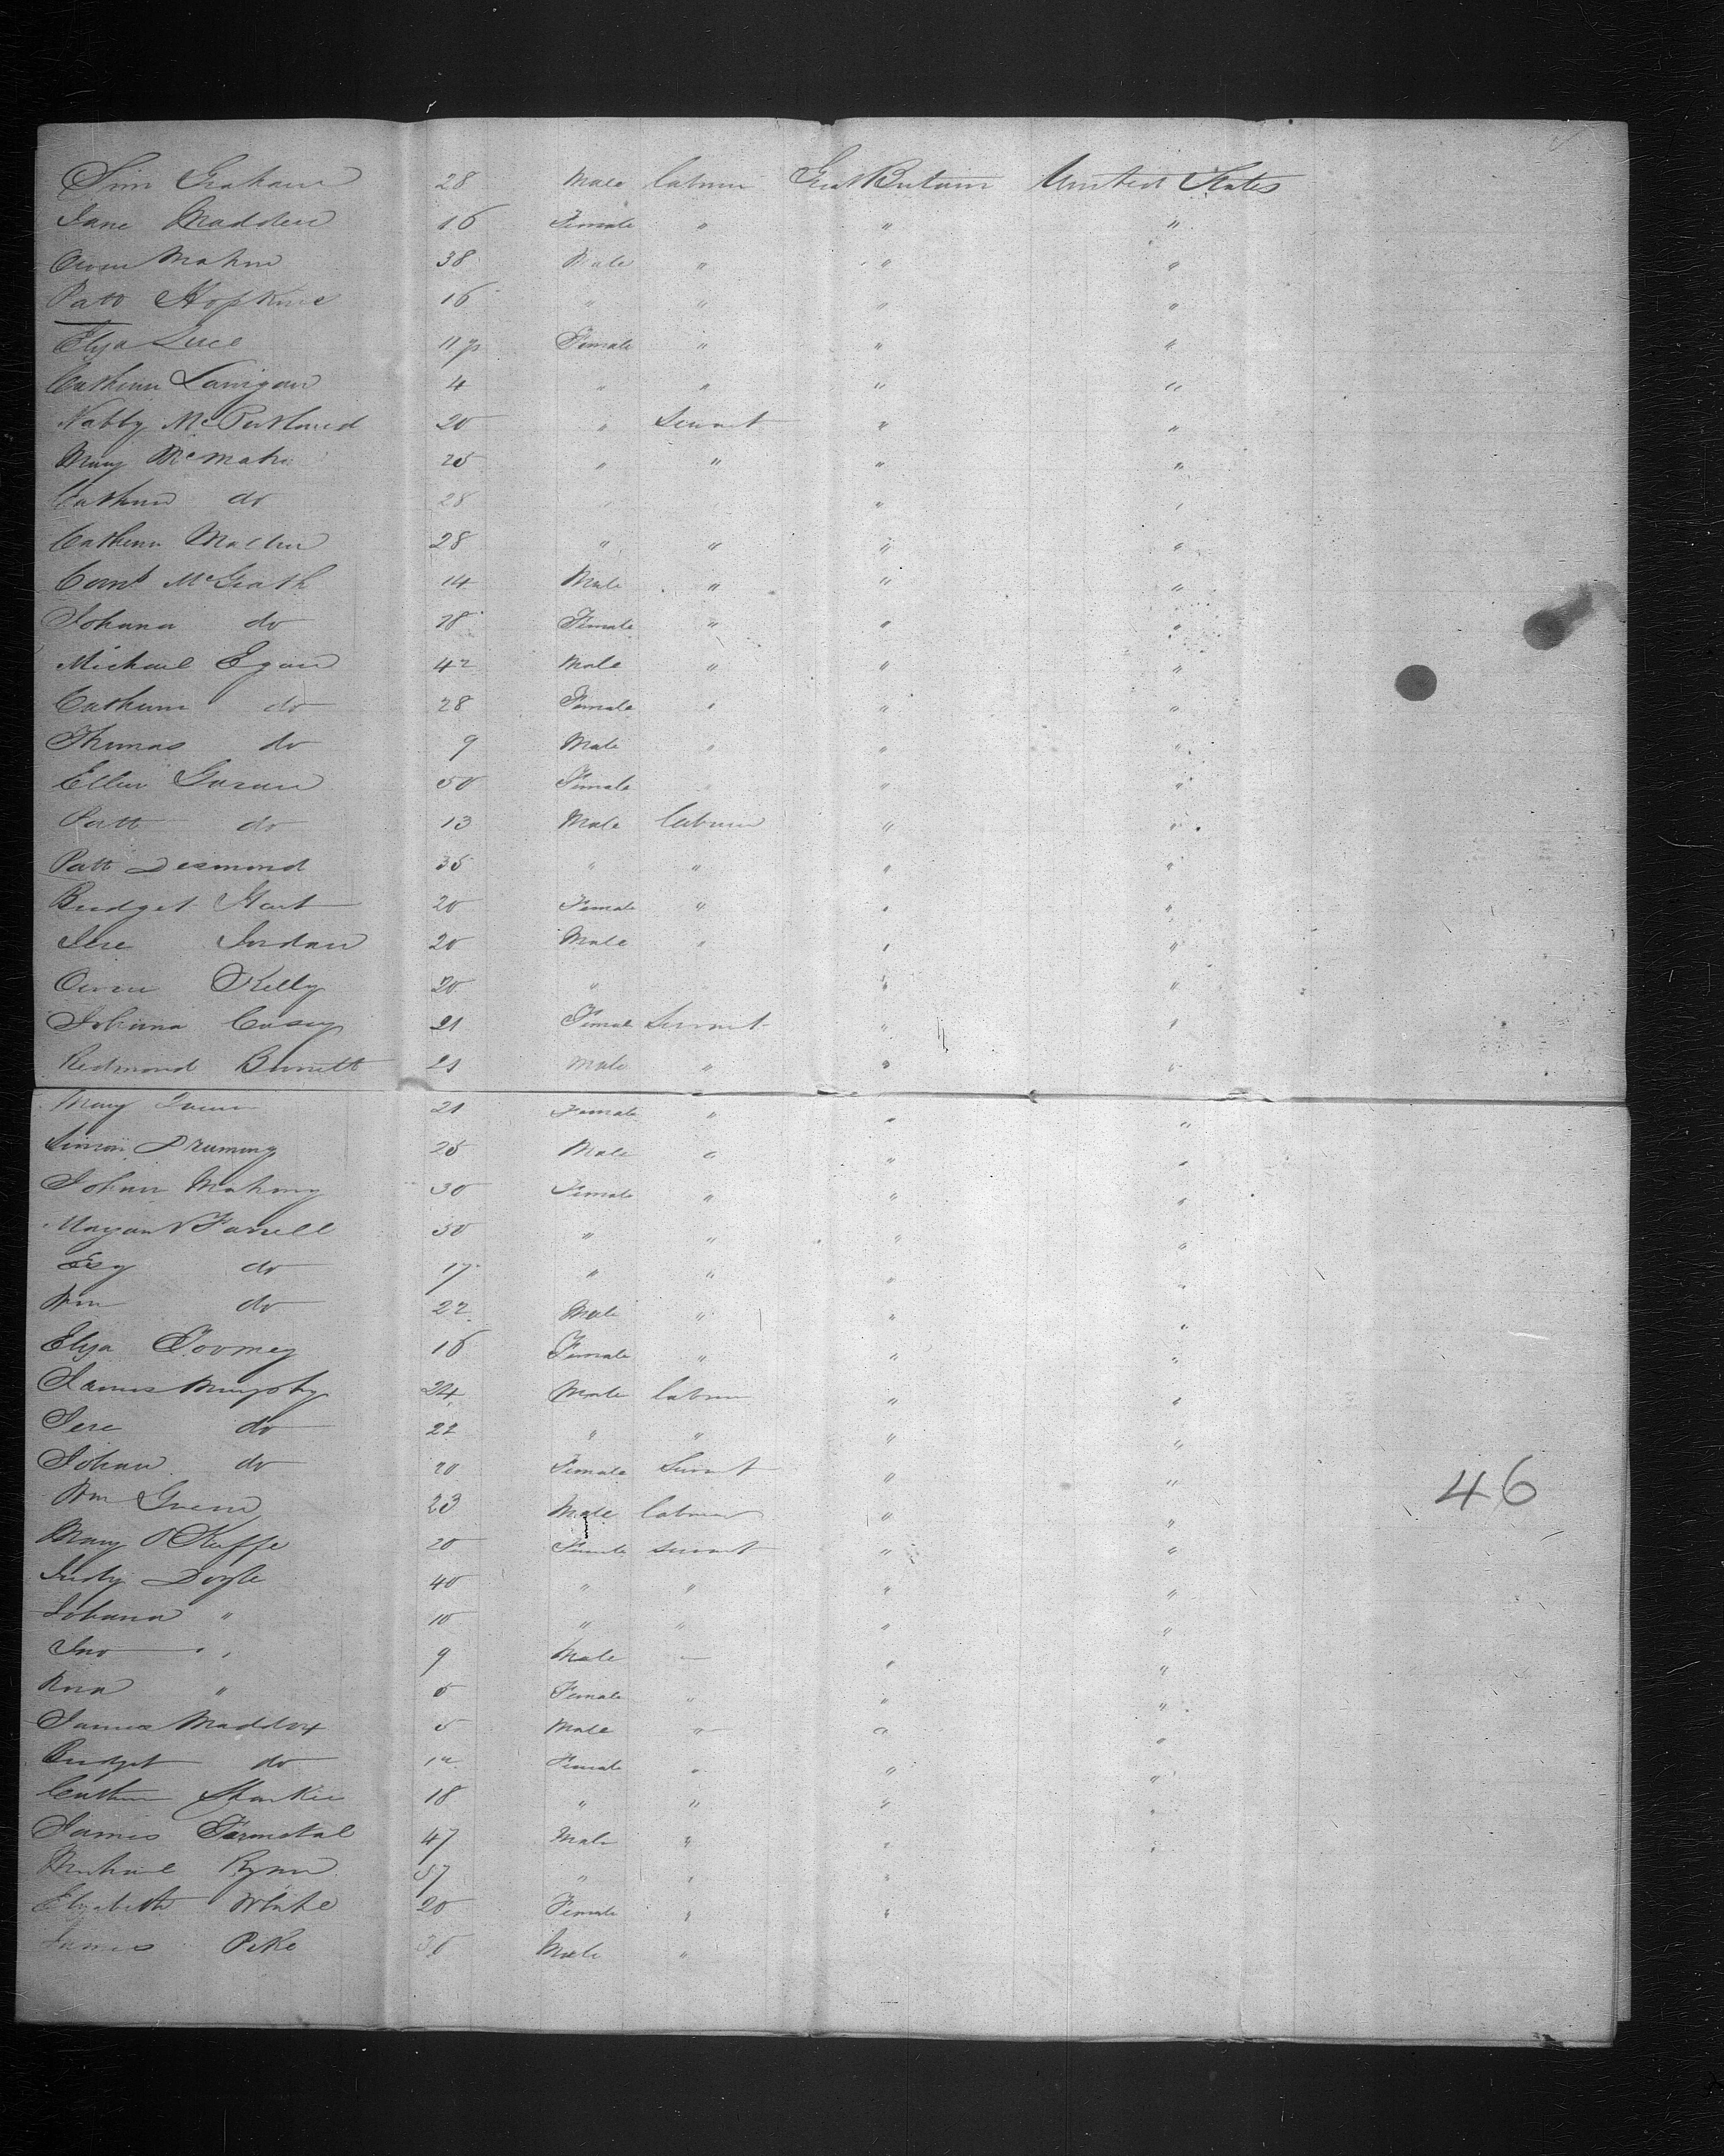 Sim Graham 28 Male labour Great Britain United States
Jane Madden 16 Female " " "
Owen Mahon 38 Male " " "
Patt Hopkins 16 " " " "
Eliza 11 Female " " "
Cathern Lanigan 4 " " " "
Nabby Mc Parthland 20 " Servant " "
Mary McMahn 25 " " " "
Cathern do 28 " " " "
Cathern 28 " " " "
Corns McGrath 14 Male " " "
Johana do 28 Female " " "
Michael Egan 42 Male " " "
Cathern do 28 Female " " "
Thomas do 9 Male " " "
Ellen 50 Female " " "
Patt do 13 Male labour " "
Patt Desmond 35 " " " "
Bridget Hart 20 Female " " "
Jere Jordan 20 Male " " "
Owen Kelly 20 " " "
Johana Casey 21 Female Servant " "
Redmond Barrett 21 Male " " "
Mary 21 Female " " "
Simon 25 Male " " "
Johan Mahony 30 Female " " "
Margart Farrell 50 " " " "
do 17 " " " "
Wm do 22 Male " " "
Eliza Toomey 16 Female " " "
James Murphy 24 Male labour " "
Jere do 22 " " " "
Johan do 20 Female Servant " "
Wm Green 23 Male labour " "
Mary OKeffe 20 Female servant " "
Judy Doyle 40 " " " "
Johana " 10 " " " "
Jno " 9 Male " " "
" Female " " "
James Maddox 5 Male " " "
Bridget do Female " " "
Cathern 18 " " " "
James 47 Male " " "
Michael 57 " " "
Elizabeth White 20 Female " "
James Pike Male "
46